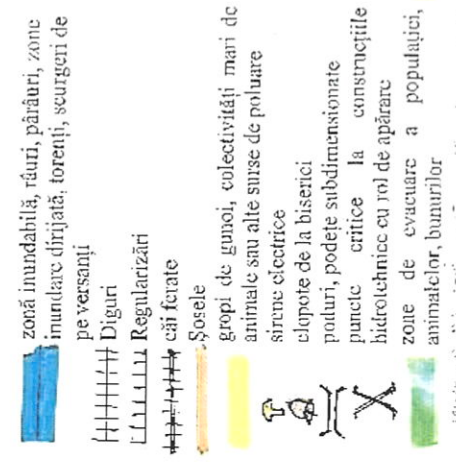 zonă inundabilă, râuri, pârâuri, zone
inundare dirijată, torenți, scurgeri de
pe versanți
Diguri
Regularizări
căi ferate
Șosele
gropi de gunoi, colectivități mari de
animale sau alte surse de poluare
sirene electrice
clopote de la biserici
poduri, podețe subdimensionate
puncte critice la construcțiile
hidrotehnice cu rol de apărare
zone de evacuare a populației,
animalelor, bunurilor